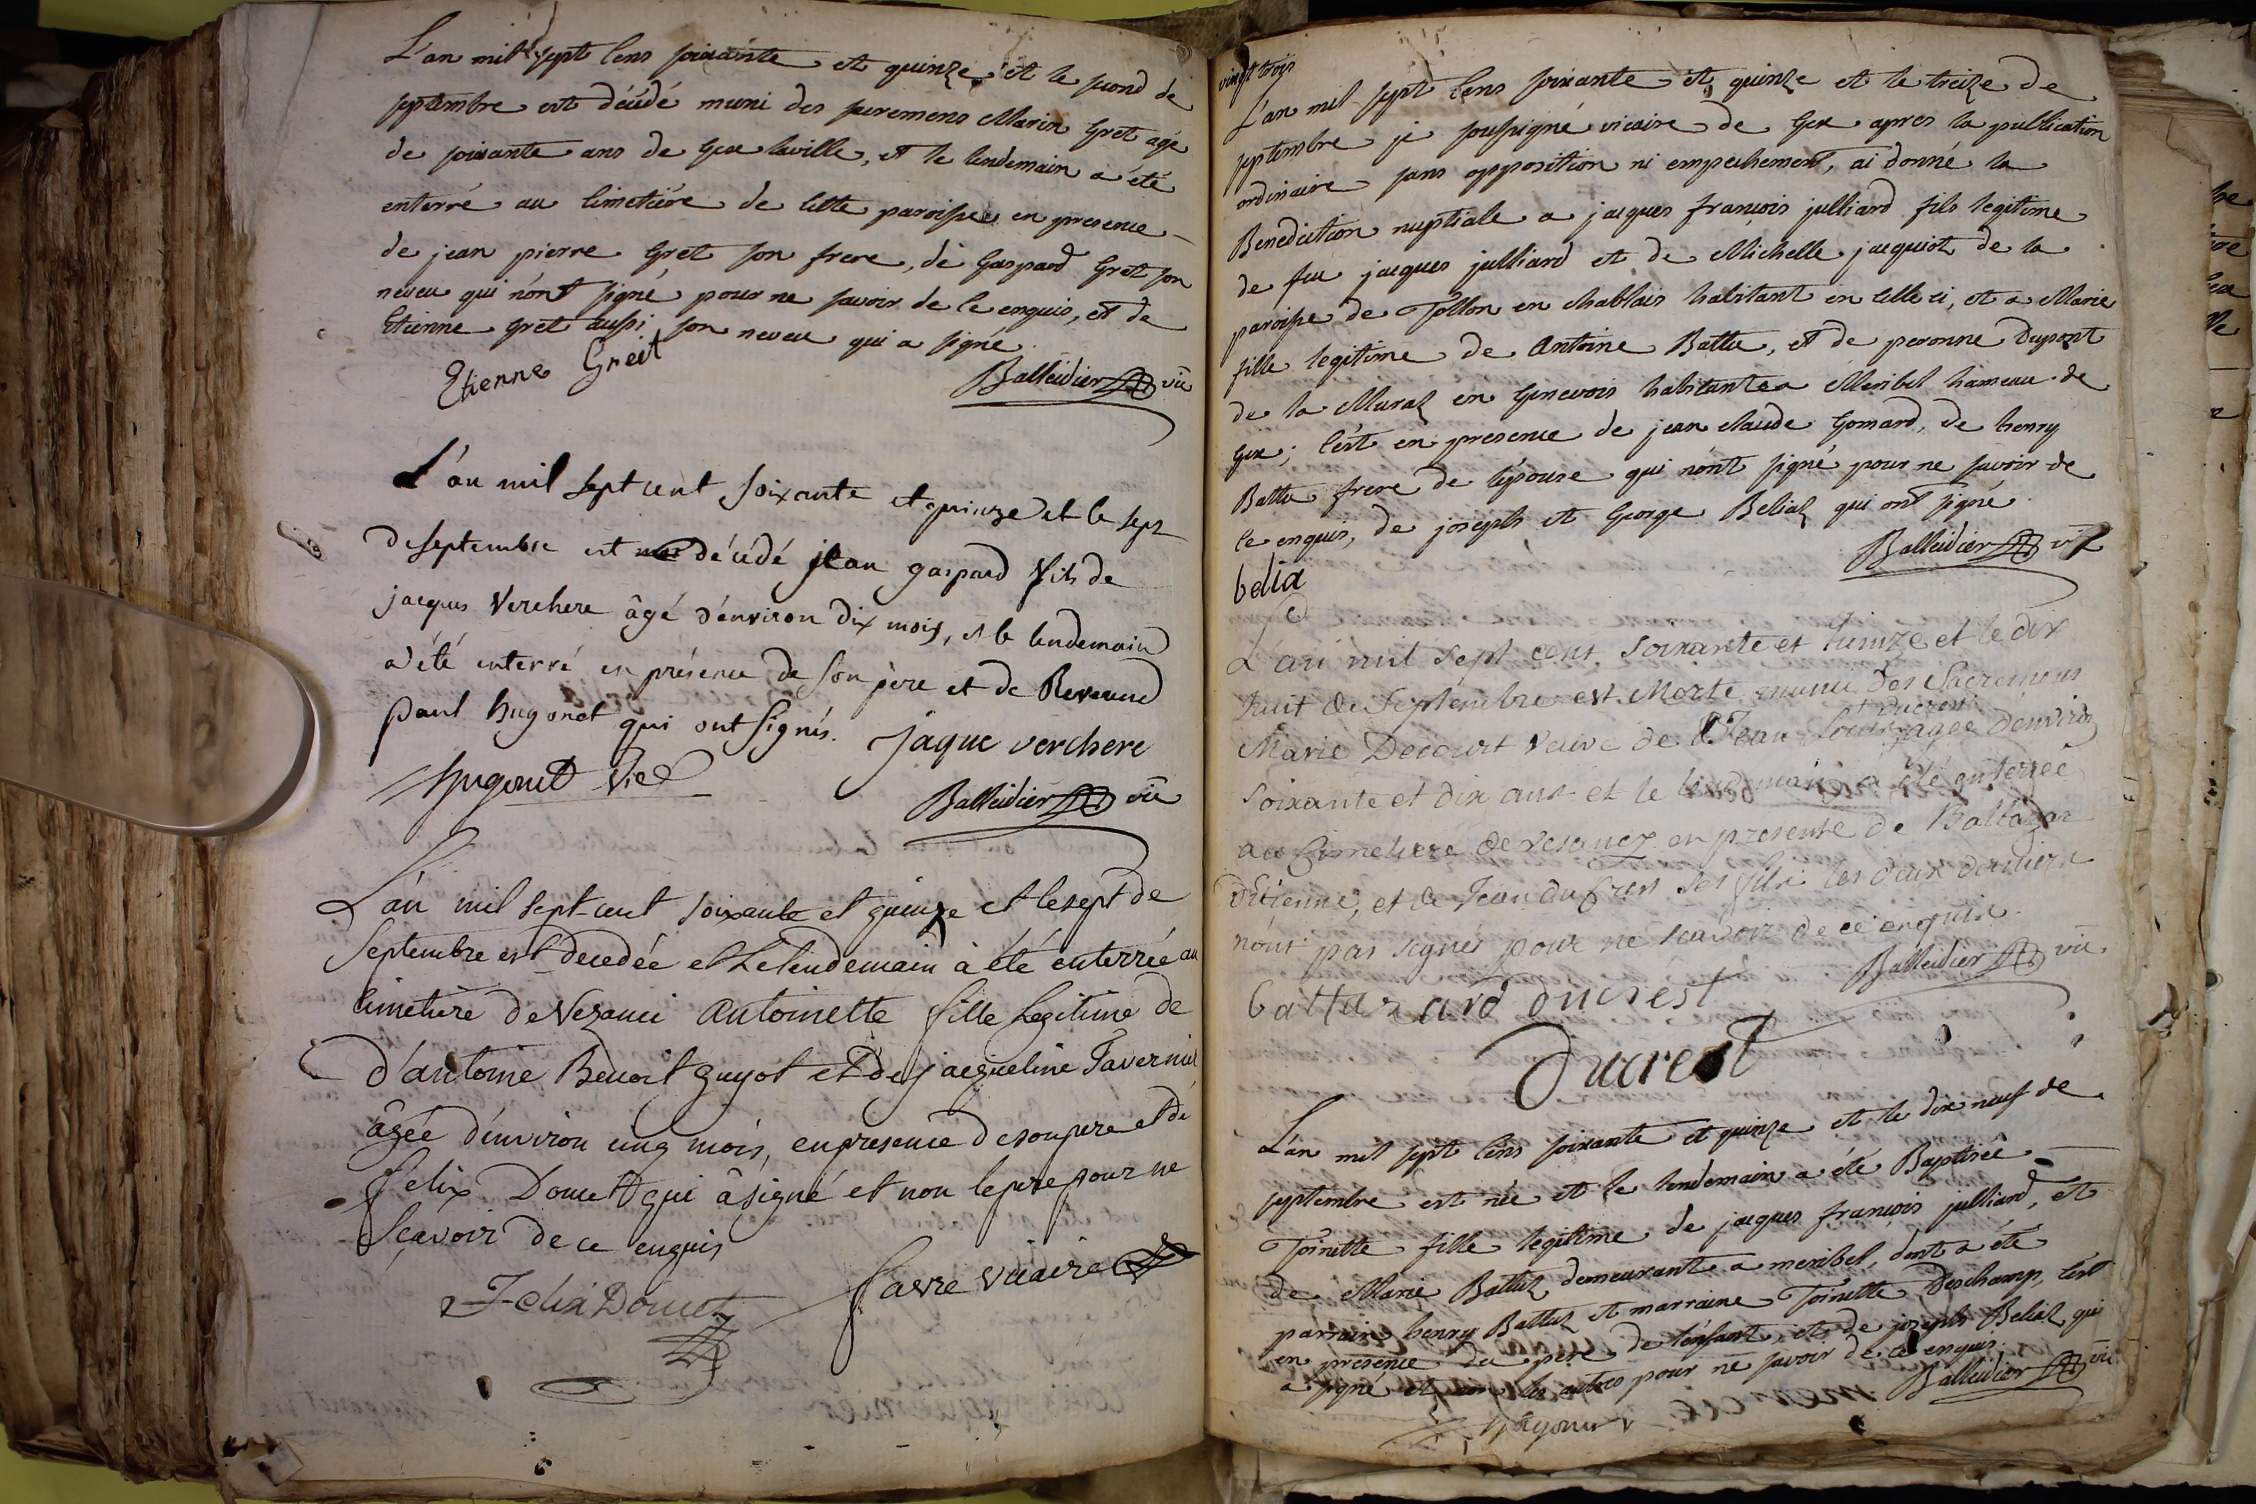 L'an mil sept cens soixante et quinze et le second de
septembre est décédé muni des sacremens Marin Gret agé
de soixante ans de Gex laville, et le lendemain a été
enterré au cimetière de cette paroisse en presence
de jean pierre Gret son frere, de Gaspard Gret son
neveu qui n'ont signé pour ne savoir de ce enquis, et de
Etienne Gret aussi son neveu qui a signé.
Etienne Greit
Balleidier vic
L'an mil sept cent soixante et quinze et le sept
de septembre est décédé jean gaspard fils de
jacques Verchere âgé d'environ dix mois, et le lendemain
a été enterré en présence de son père et de Reverend
paul hugonet qui ont signés.
jaque verchere
hugonet vic
Balleidier vic
L'an mil sept-cent soixante et quinze et le sept de
Septembre est decedée et le lendemain à été enterrée au
cimetière de Vezanci Antoinette fille legitime de
d'antoine Benoit guyot et de jacqueline Tavernier
âgée d'environ cinq mois, en presence de son pere et de
felix Doucet qui â signé et non le pere pour ne
sçavoir de ce enquis
Felix Doucet
favre vicaire
vingt trois
L'an mil sept cens soixante et quinze et le treize de
septembre je soussigné vicaire de Gex apres la publication
ordinaire sans opposition ni empechement, ai donné la
Benediction nuptiale a jacques francois julliard fils legitime
de feu jacques julliard et de Michelle jacquiot de la
paroisse de Tollon en chablais habitant en celle ci, et a Marie
fille legitime de Antoine Battu, et de peronne Dupont
de la Muraz en Genevois habitante a Meribel hameau de
Gex; c'est en presence de jean claude Gomard, de henry
Battu frere de l'épouse qui n'ont signé pour ne savoir de
ce enquis, de joseph et George Beliaz qui ont signé.
Balleidier vic
belia
L'an mil sept cent soixante et quinze et le dix
huit de Septembre est Morte munie des Sacremens
ducrest
Marie Decourt veuve de Jean Louis agée d'environ
soixante et dix ans et le lendemain a été enterrée
au Cimetiere de vesancy en presence de Baltazar
d'Etienne, et de Jean du Crest ses fils les deux derniers
n'ont pas signés pour ne scavoir de ce enquis.
Balleidier vic
battazard ducrest
Ducrest
L'an mil sept cens soixante et quinze et le dix neuf de
septembre est née et le lendemain a été Baptisée
Toinette fille legitime de jacques francois julliard, et
de Marie Battuz demeurante a meribel, dont a été
parrain henry Battuz et marraine Toinette Deschamp, c'est
en presence du pere de l'enfant et de joseph Beliaz qui
a signé et non les autres pour ne savoir de ce enquis.
Balleidier vic